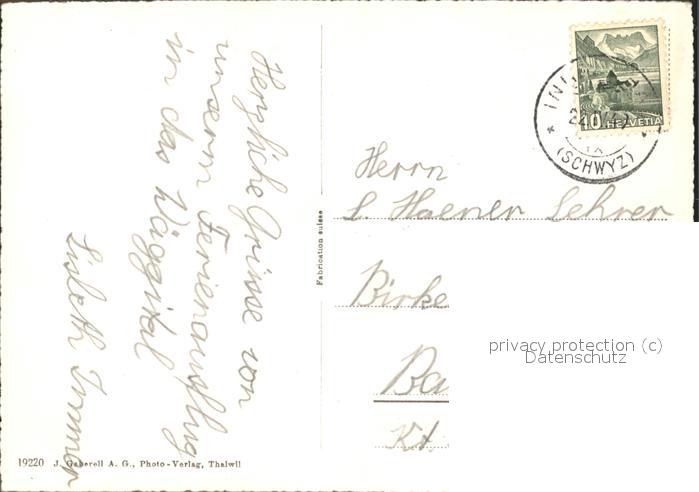 Herzliche Grüsse von
unserm Ferienausflug
in das Wäggital
Lisbeth
19220 J. Gaberell A. G., Photo-Verlag, Thalwil
Fabrication suisse
10 HELVETIA
(SCHWYZ)
Herrn
Haener Lehrer
Birke
Ba
Kt.
privacy protection (c)
Datenschutz